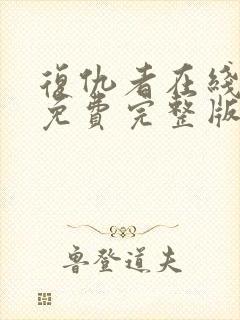 復仇者在綫
免費完整版
魯登道夫